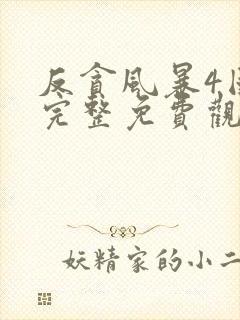 反貪風暴4國
完整免費觀
妖精家的小二